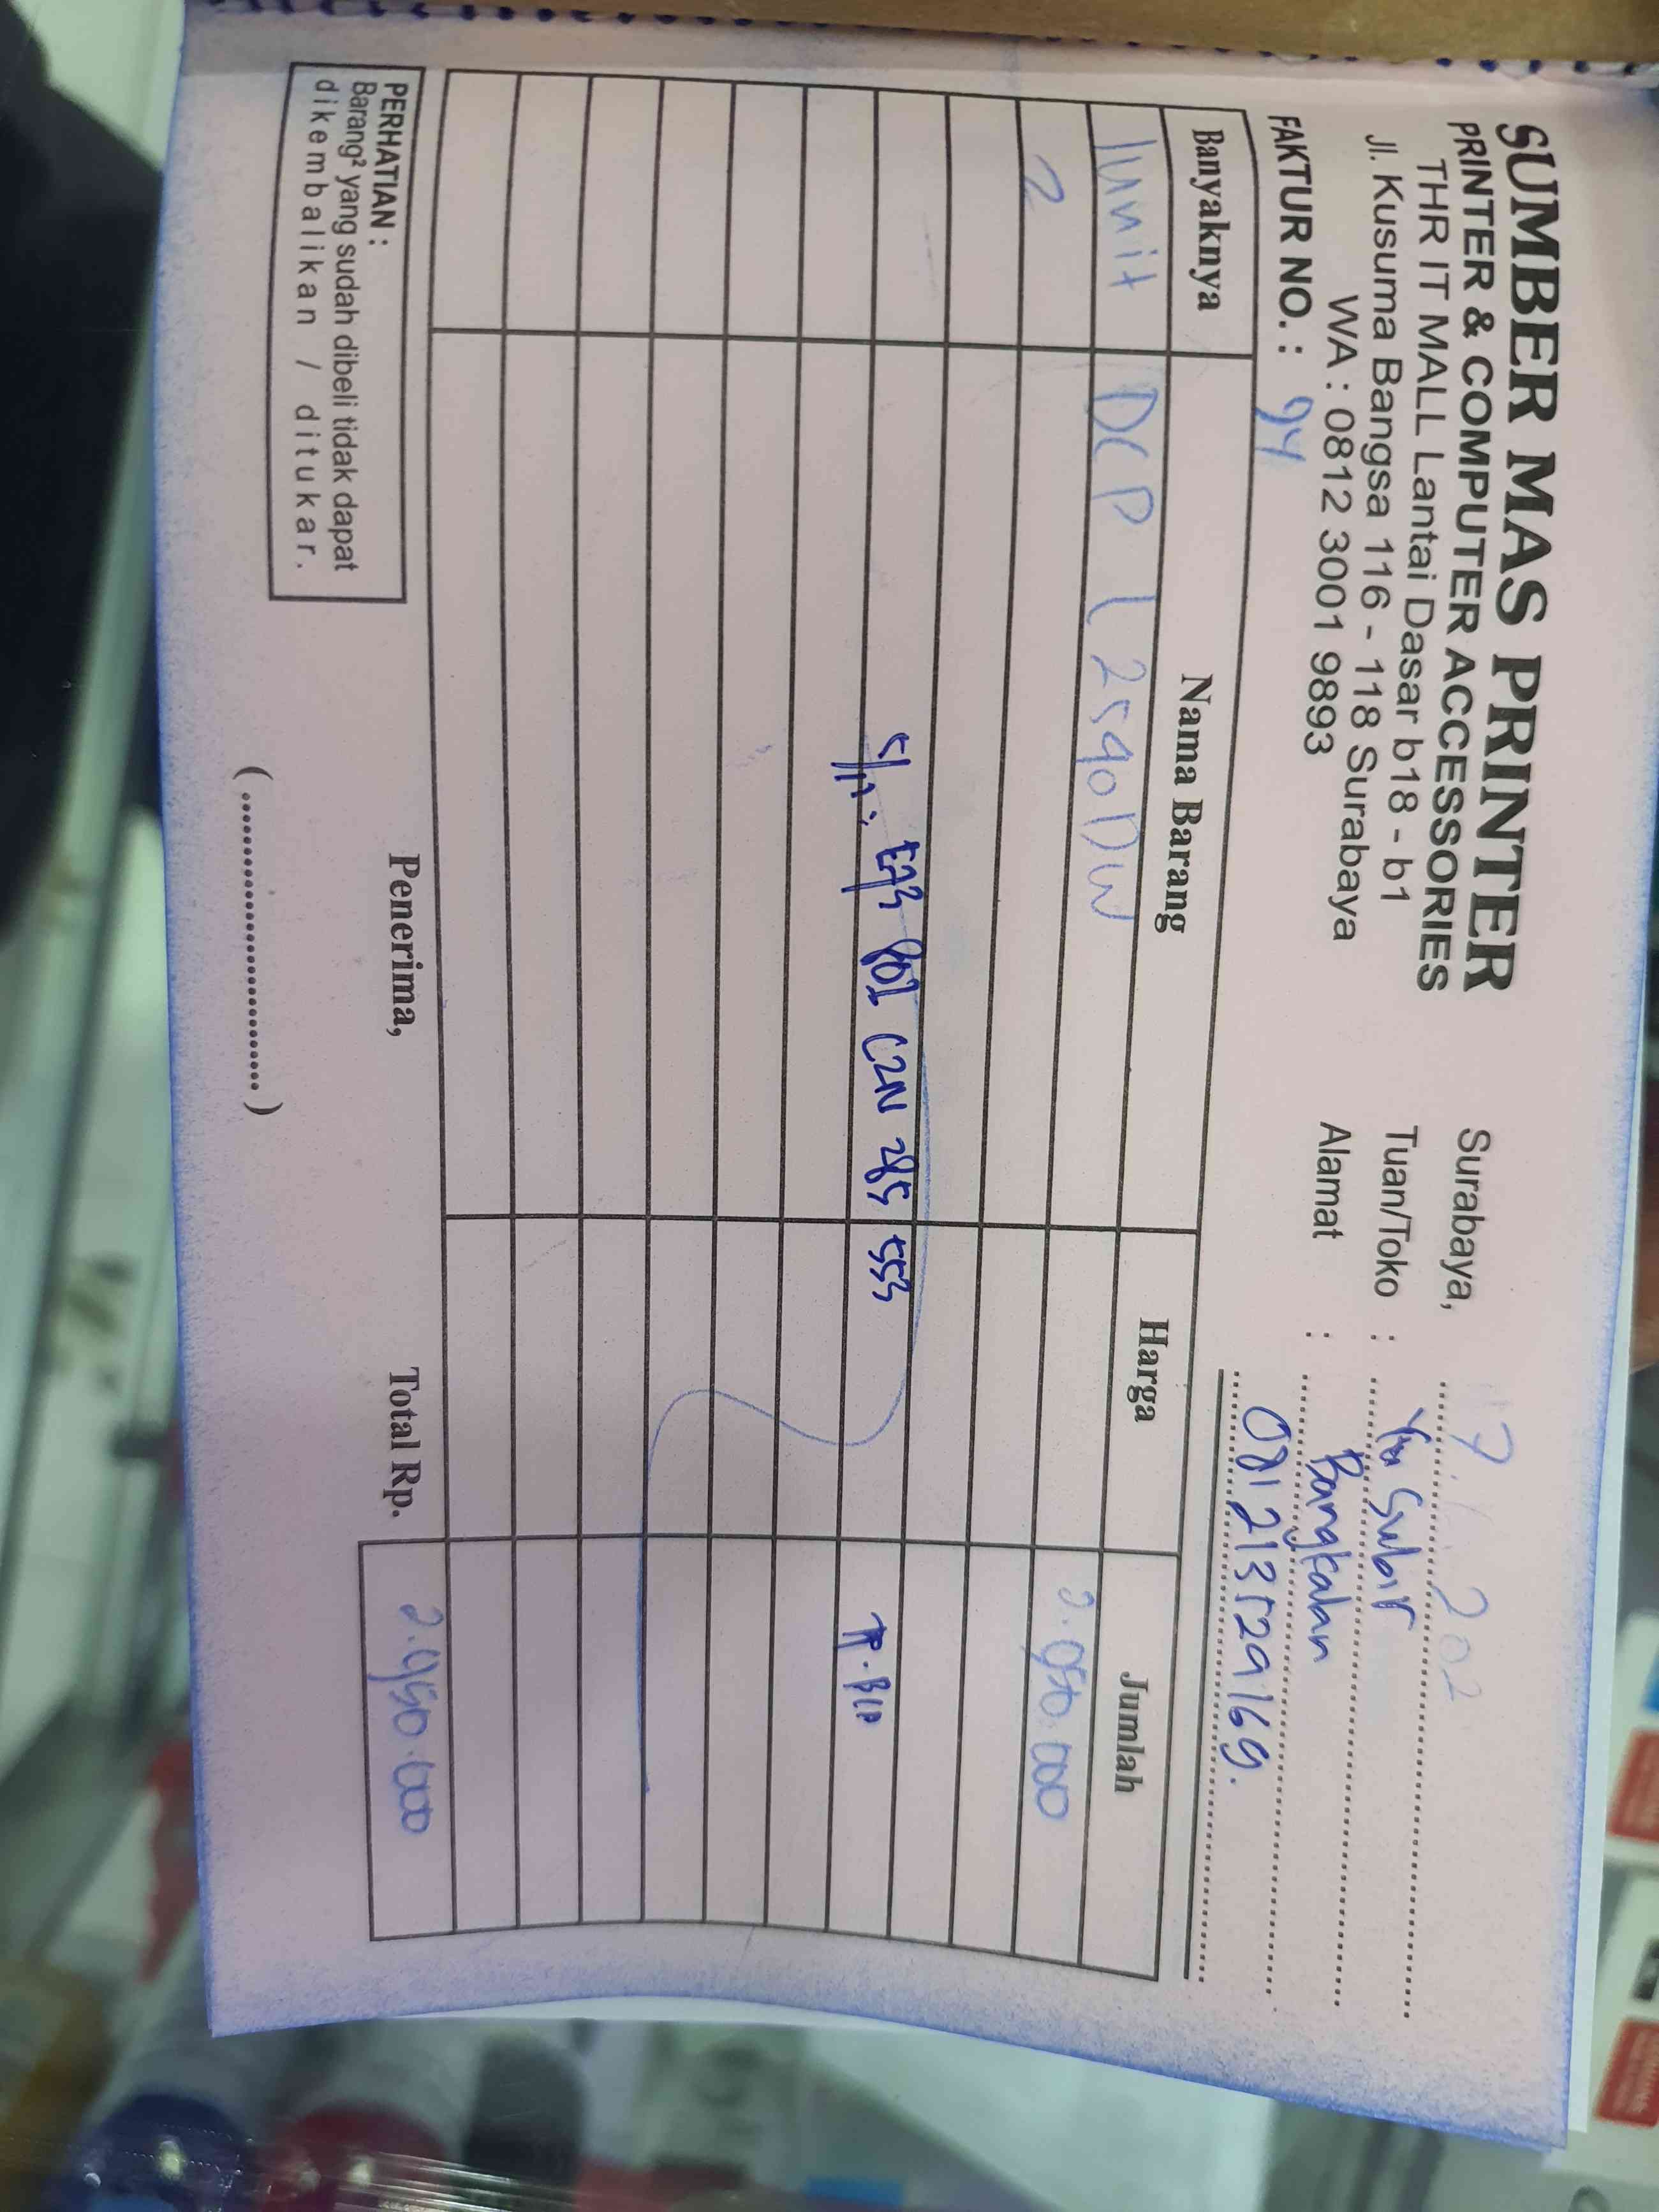 SUMBER MAS PRINTER
PRINTER & COMPUTER ACCESSORIES
THR IT MALL Lantai Dasar b18 - b1
Jl. Kusuma Bangsa 116 - 118 Surabaya
WA : 0812 3001 9893
FAKTUR NO. : 94
Surabaya, 7 202
Tuan/Toko :
Alamat : Bangkalan
081213129169.
Banyaknya Nama Barang Harga Jumlah
1 unit DCP L2540DW
2 2.950.000
E73 801 C2N 285 553
PERHATIAN :
Barang² yang sudah dibeli tidak dapat
dikembalikan / ditukar.
Penerima,
(........................)
Total Rp. 2.950.000